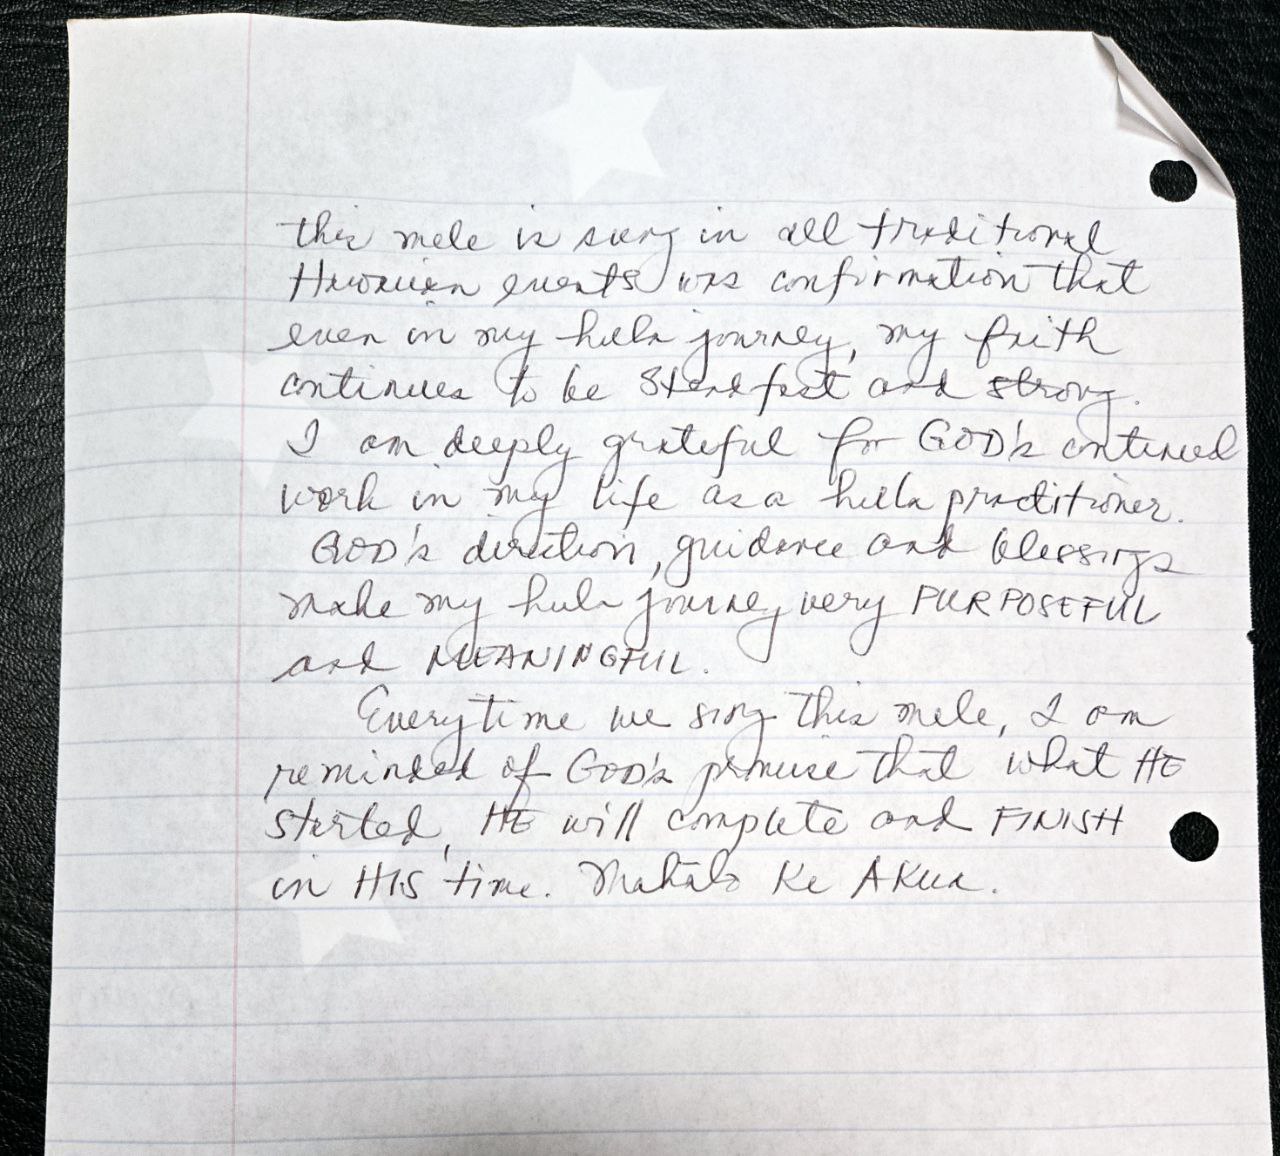 this mele is sung in all traditional
Hawaiian events was confirmation that
even in my hula journey, my faith
continues to be steadfast and strong.
I am deeply grateful for GOD's continued
work in my life as a hula practitioner.
GOD's direction, guidance and blessings
make my hula journey very PURPOSEFUL
and MEANINGFUL.
Everytime we sing this mele, I am
reminded of GOD's promise that what HE
started, HE will complete and FINISH
in HIS time. Mahalo Ke AKua.